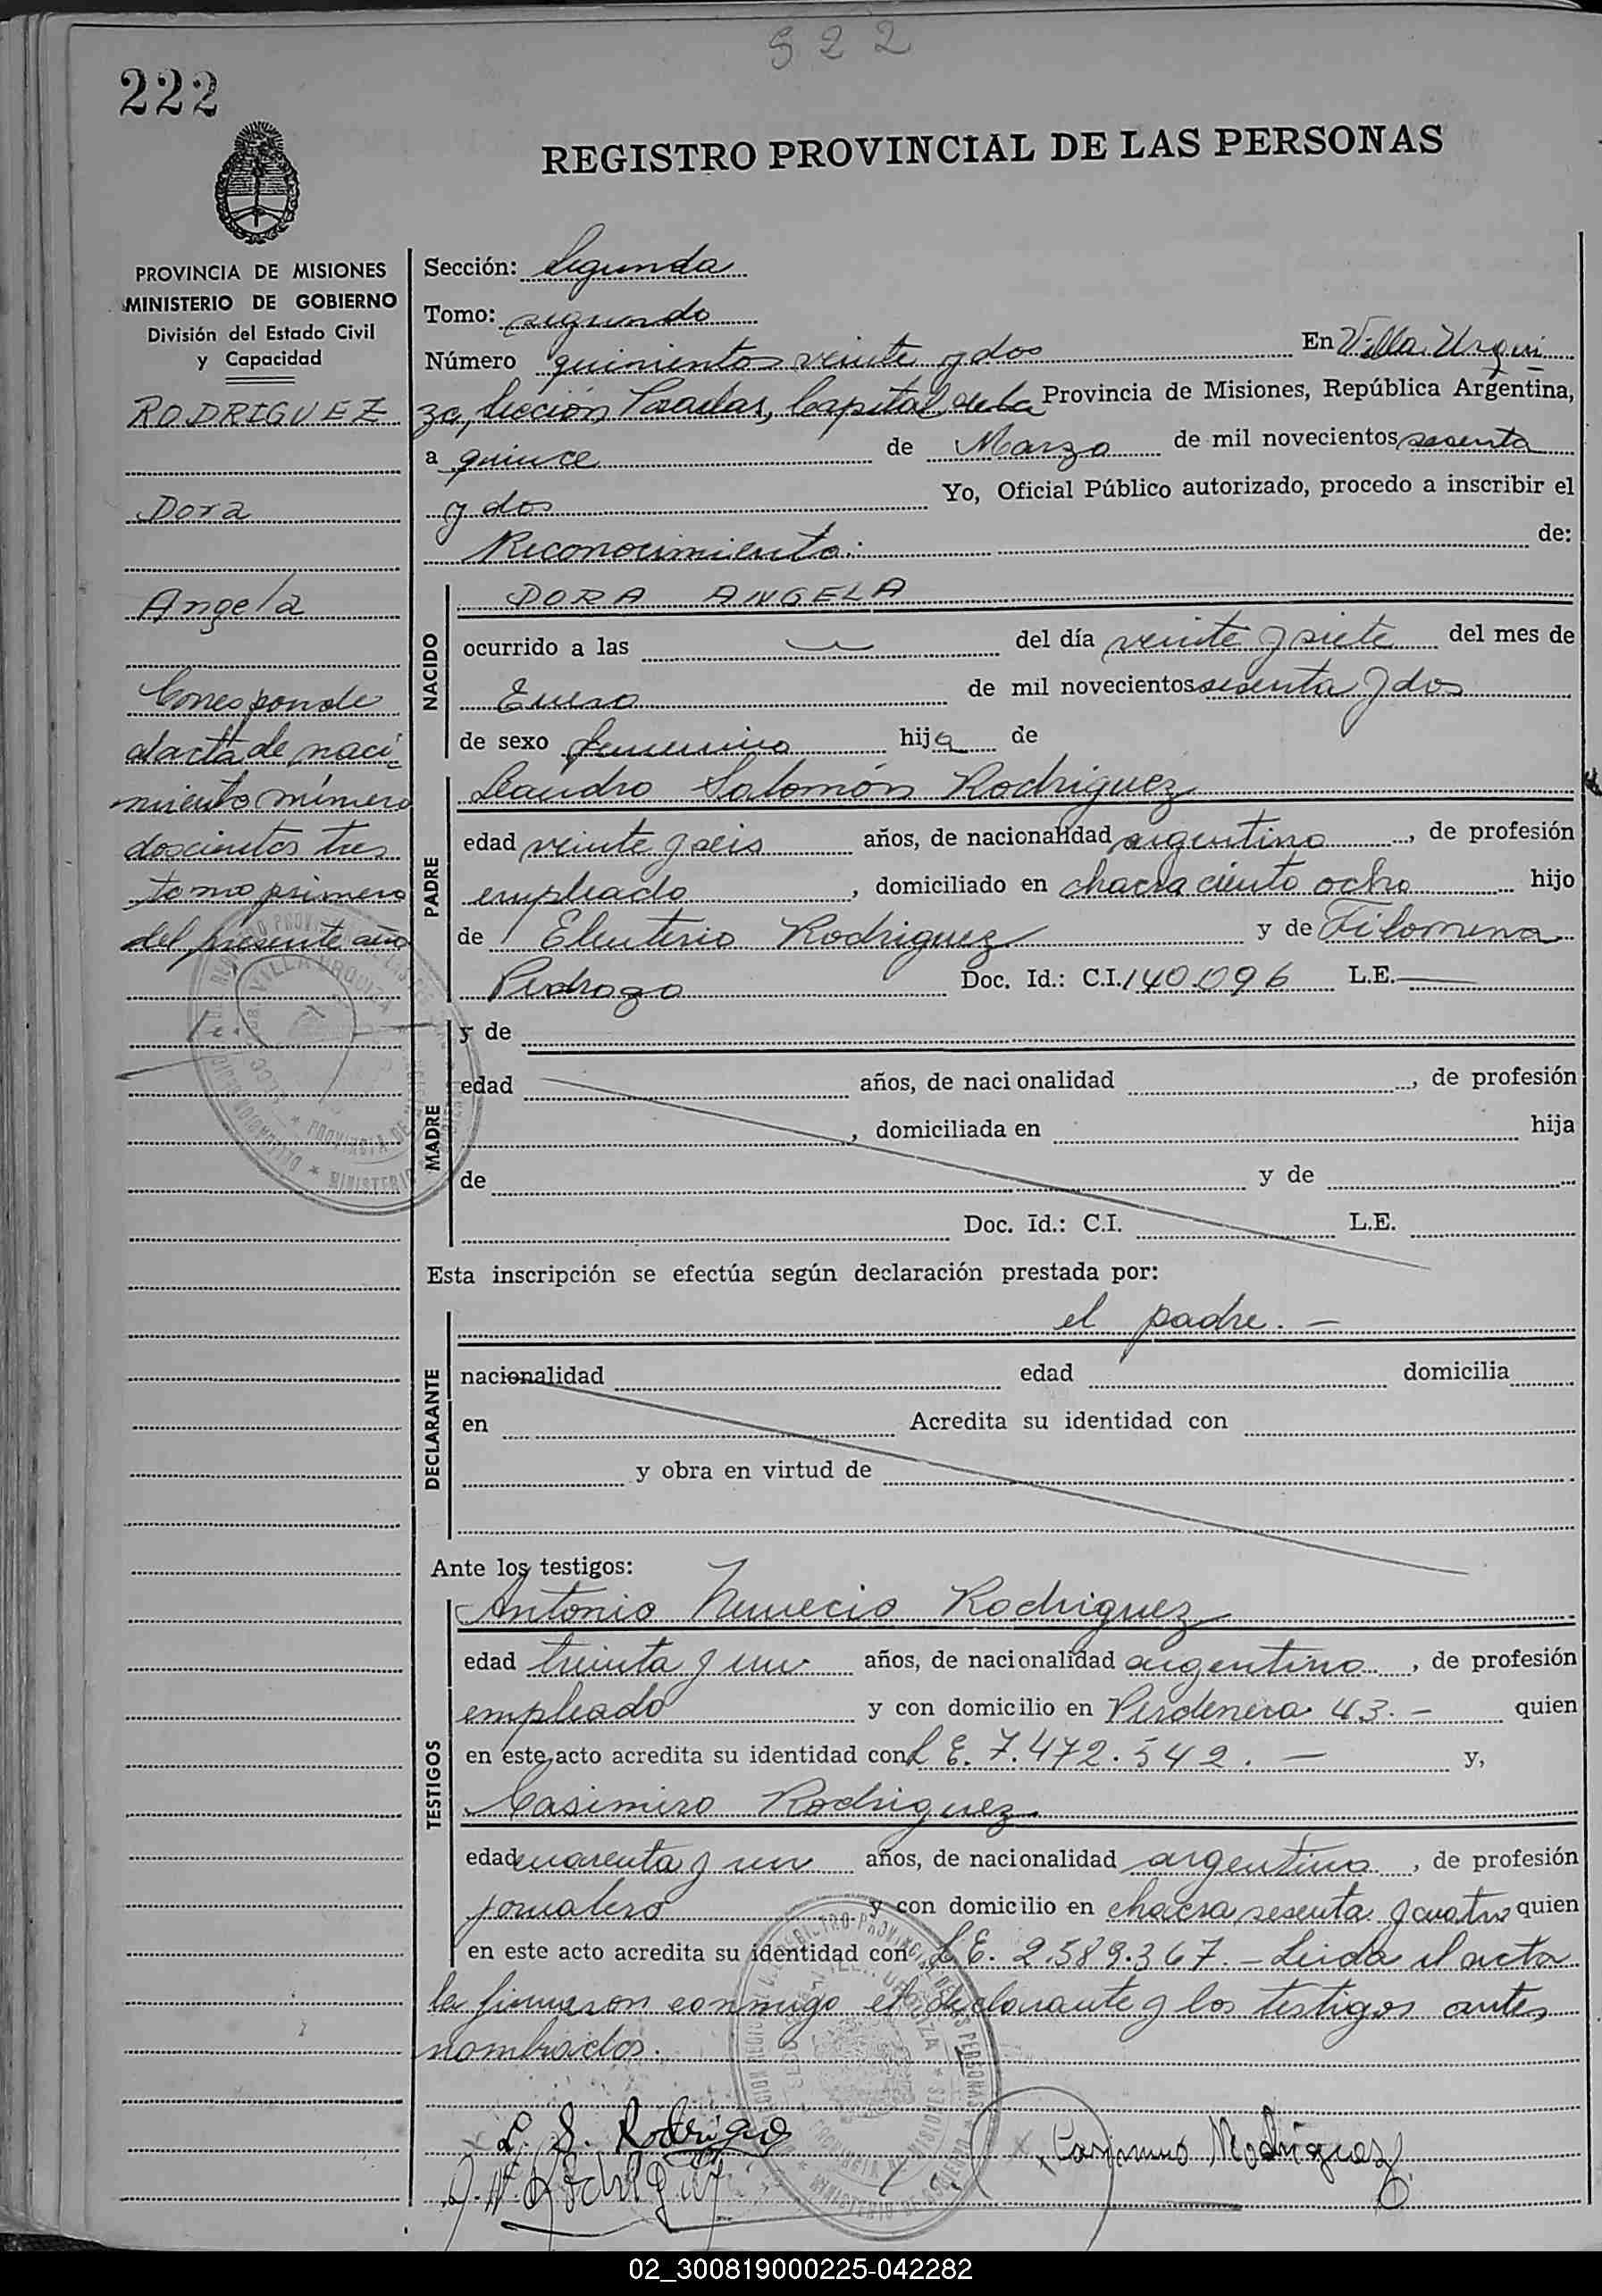 522
222
REGISTRO PROVINCIAL DE LAS PERSONAS
PROVINCIA DE MISIONES
MINISTERIO DE GOBIERNO
División del Estado Civil
y Capacidad
RODRIGUEZ
Dora
Angela
Corresponde
al acta de naci-
miento número
doscientos tres
tomo primero
del presente año
Sección: Segunda
Tomo: segundo
Número quinientos veinte y dos En Villa Urqui
za, Sección Posadas, Capital de la Provincia de Misiones, República Argentina,
a quince de Marzo de mil novecientos sesenta
y dos Yo, Oficial Público autorizado, procedo a inscribir el
Reconocimiento: de:
NACIDO
DORA ANGELA
ocurrido a las del día veinte y siete del mes de
Enero de mil novecientos sesenta y dos
de sexo femenino hija de
PADRE
Leandro Salomón Rodriguez
edad veinte y seis años, de nacionalidad argentino, de profesión
empleado, domiciliado en chacra ciento ocho hijo
de Eleuterio Rodriguez y de Filomena
Pedrozo Doc. Id.: C.I. 140.096 L.E.
MADRE
y de
edad años, de nacionalidad , de profesión
, domiciliada en hija
de y de
Doc. Id.: C.I. L.E.
Esta inscripción se efectúa según declaración prestada por:
DECLARANTE
el padre. —
nacionalidad edad domicilia
en Acredita su identidad con
y obra en virtud de
Ante los testigos:
TESTIGOS
Antonio Nemecio Rodriguez
edad treinta y un años, de nacionalidad argentino, de profesión
empleado y con domicilio en Perdenera 43. — quien
en este acto acredita su identidad con L E. 7.472.542. — y,
Casimiro Rodriguez.
edad cuarenta y un años, de nacionalidad argentino, de profesión
jornalero y con domicilio en chacra sesenta y cuatro quien
en este acto acredita su identidad con L E. 2.589.367. — Leida el acta
la firmaron conmigo el declarante y los testigos antes
nombrados.
L. S. Rodriguez
Casimiro Rodriguez
A. N. Rodriguez
02_300819000225-042282